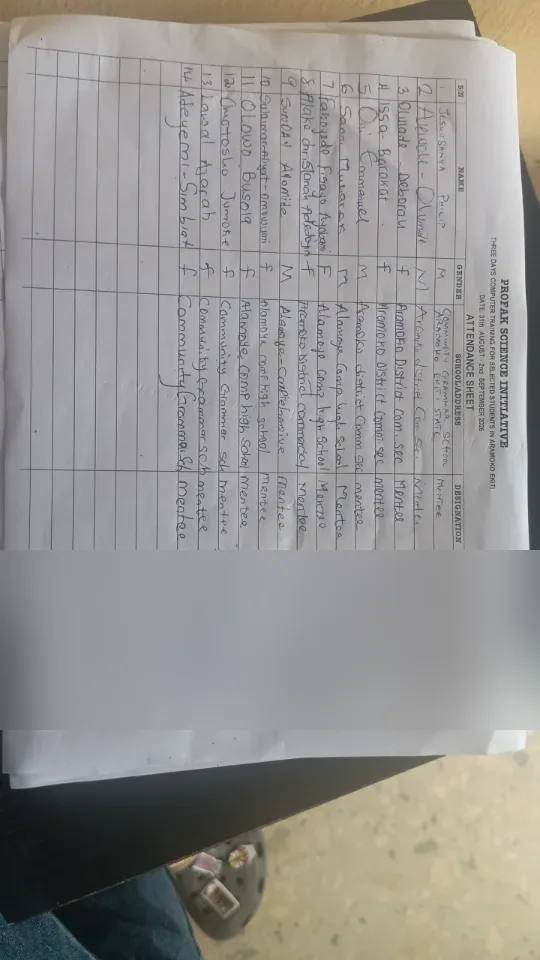 PROPAK SCIENCE INITIATIVE
THREE DAYS COMPUTER TRAINING FOR SELECTED STUDENTS IN ARAMOKO EKITI
DATE: 31th AUGUST - 2nd SEPTEMBER 2026
ATTENDANCE SHEET
S/N NAME GENDER SCHOOL/ADDRESS DESIGNATION
1 PHILIP M COMMUNITY GRAMMAR SCHOOL ARAMOKO EKITI STATE MENTEE
2 Aramoko district Com Sec
3 Deborah f Aramoko District com. sec Mentee
4 Issa - Barakat f Aramoko District Comm. sec mentee
5 Emmanuel M Aramoko district Comm sec mentee
6 Sanni Mubarak M Alamoye Camp high school Mentee
7 Fisayo F Alamoye Comp high School Mentee
8 f Aramoko District commercial Mentee
9 SUNDAY Ayomide M Alamoye - comprehensive Mentee
10 Sulaimon f Alamoye comp high school Mentee
11 Olowo Busola f Alamoye comp high school mentee
12 Omotosho Jumoke f Community Grammer sch mentee
13 Lawal f Community grammer sch mentee
14 Adeyemi - Simbiat f Community Grammar Sch mentee